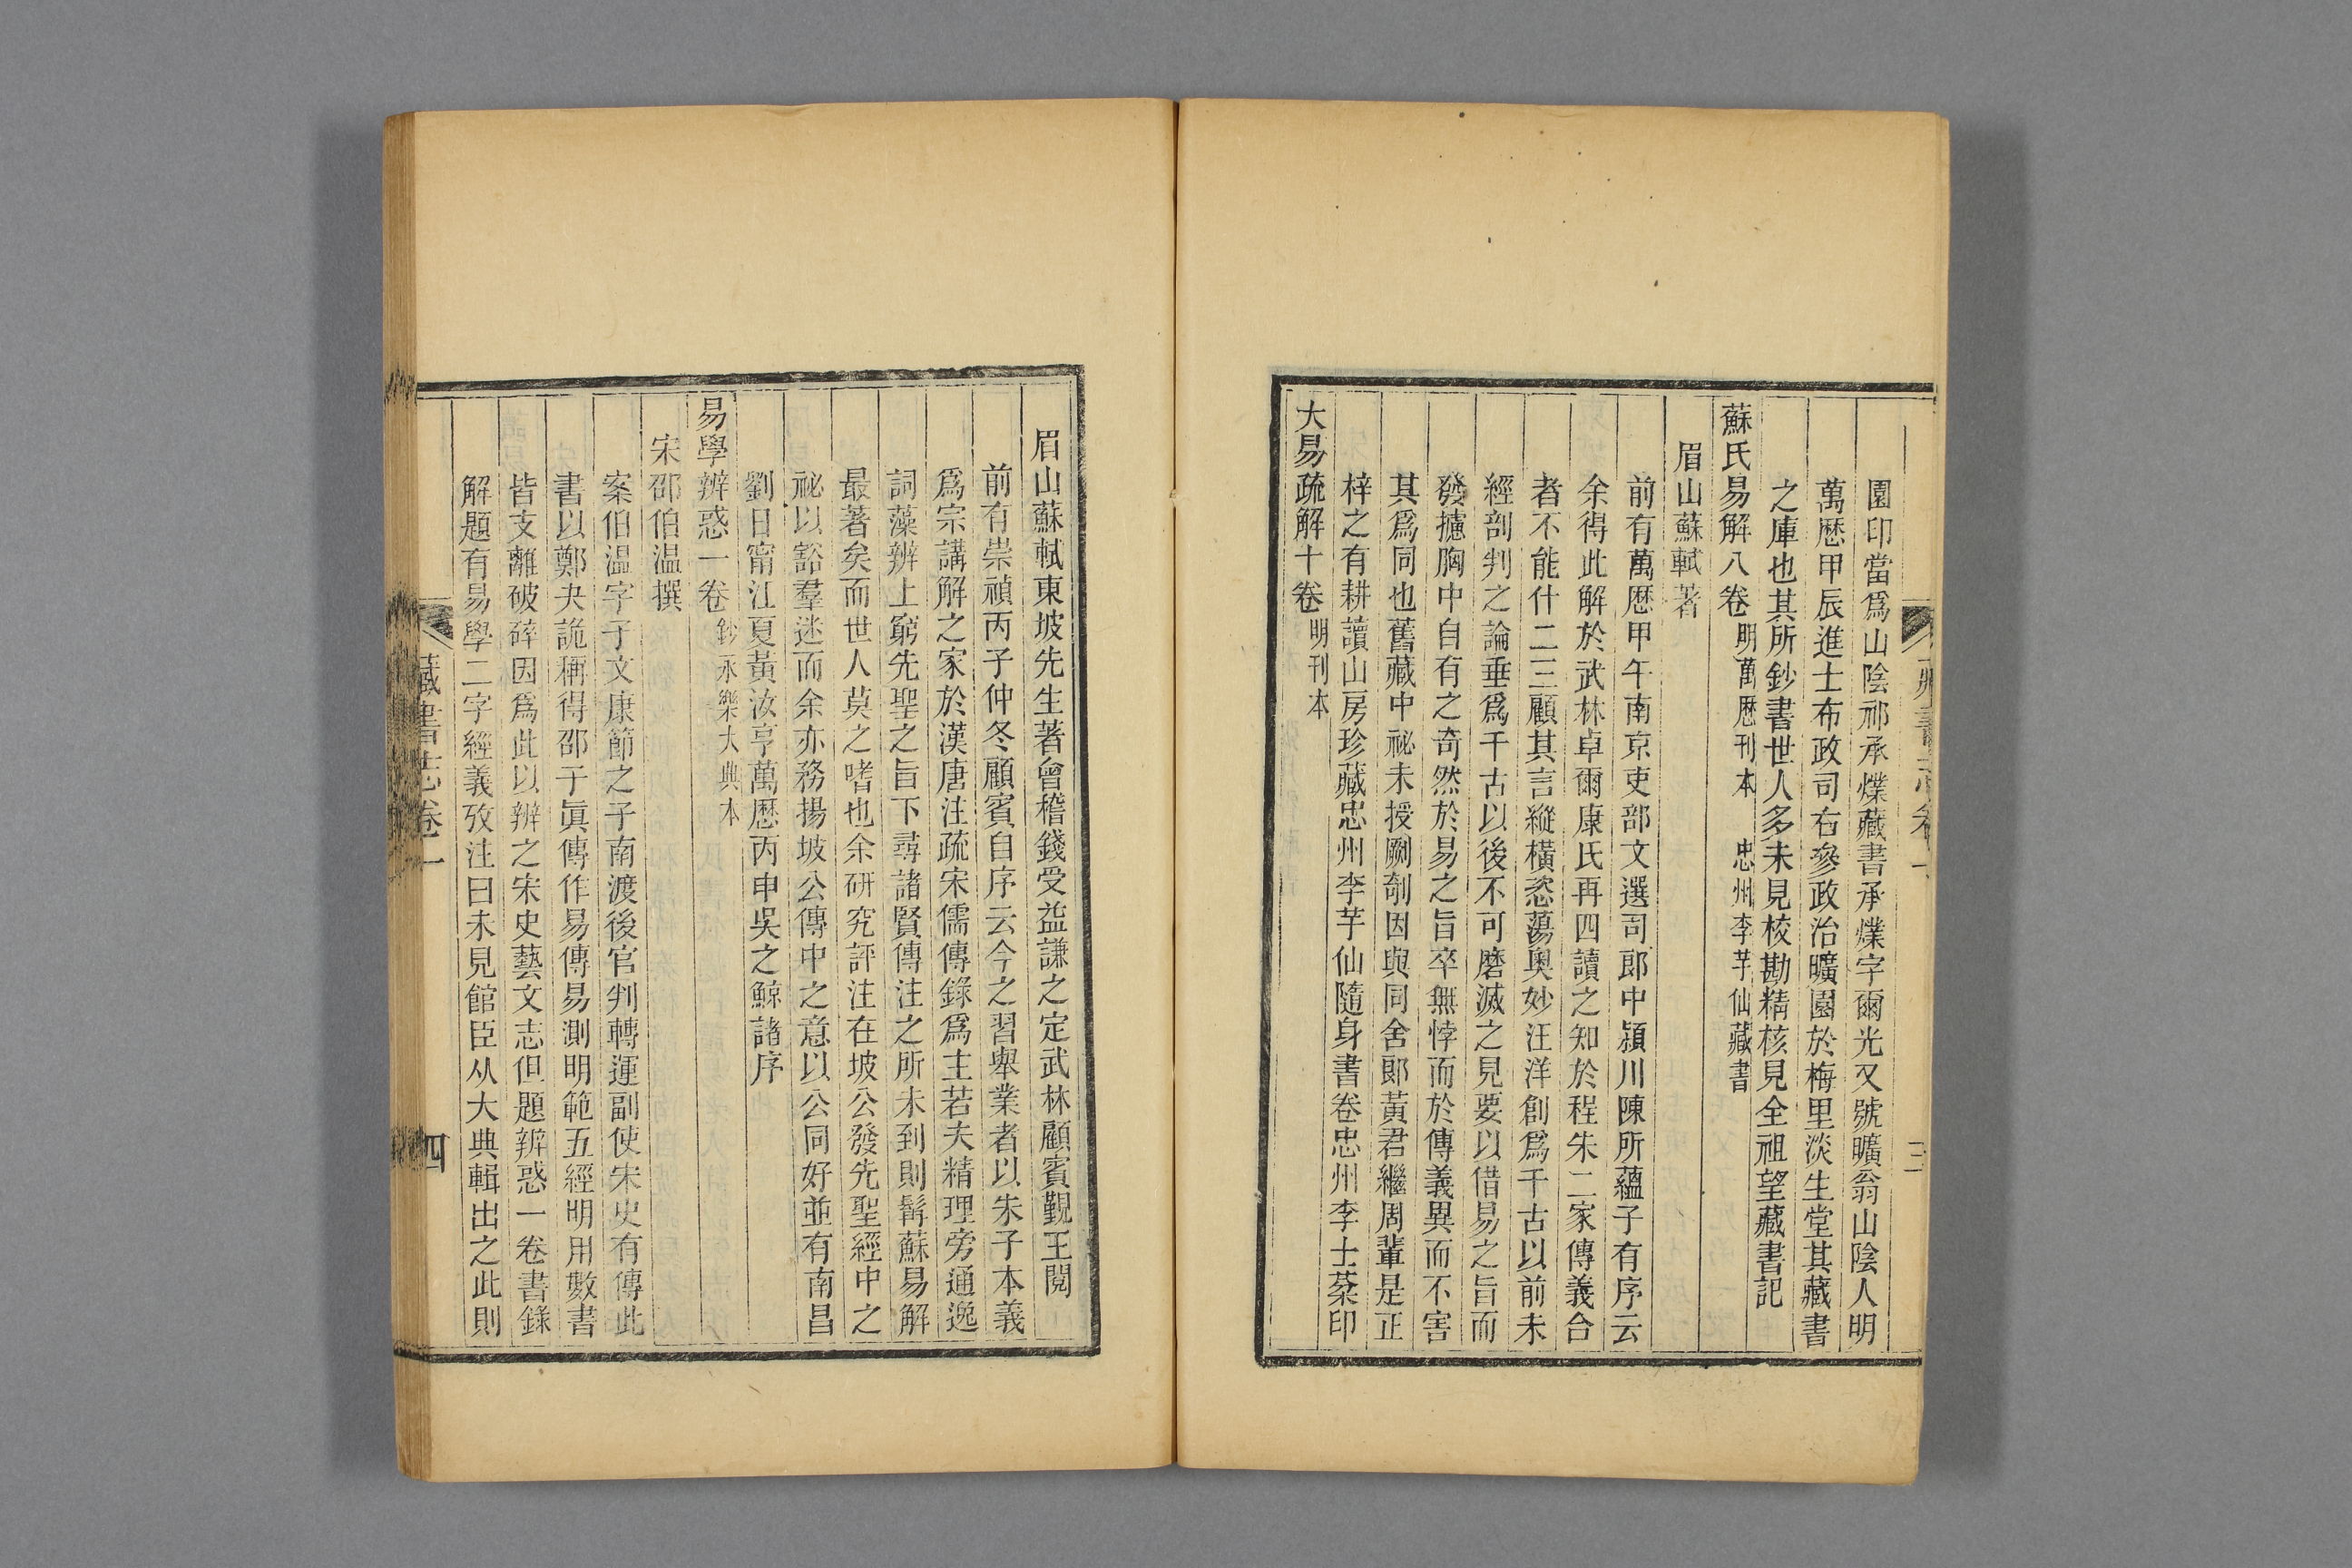 園印當爲山陰祁承㸁藏書承㸁字爾光又號曠翁山陰人明
萬厯甲辰進士布政司右參政治曠園於梅里淡生堂其藏書
之庫也其所鈔書世人多未見校勘精核見全祖望藏書記
蘇氏易解八卷 明萬厯刊本 忠州李芋仙藏書
眉山蘇軾著
前有萬厯甲午南京吏部文選司郎中潁川陳所蘊子有序云
余得此解於武林卓爾康氏再四讀之知於程朱二家傳義合
者不能什二三顧其言縱橫恣蕩奧妙汪洋創爲千古以前未
經剖判之論垂爲千古以後不可磨滅之見要以借易之旨而
發攄胸中自有之奇然於易之旨卒無悖而於傳義異而不害
其爲同也舊藏中祕未授劂剞因與同舍郎黃君繼周輩是正
梓之有耕讀山房珍藏忠州李芋仙隨身書卷忠州李士棻印
大易疏解十卷 明刊本
眉山蘇軾東坡先生著會稽錢受益謙之定武林顧賓觀王閱
前有崇禎丙子仲冬顧賓自序云今之習舉業者以朱子本義
爲宗講解之家於漢唐注疏宋儒傳錄爲主若夫精理旁通逸
詞藻辨上窮先聖之旨下尋諸賢傳注之所未到則髯蘇易解
最著矣而世人莫之嗜也余研究評注在坡公發先聖經中之
祕以豁羣迷而余亦務揚坡公傳中之意以公同好並有南昌
劉日甯江夏黃汝亨萬厯丙申吳之鯨諸序
易學辨惑一卷 鈔永樂大典本
宋邵伯溫撰
案伯溫字子文康節之子南渡後官判轉運副使宋史有傳此
書以鄭夬詭稱得邵子眞傳作易傳易測明範五經明用數書
皆支離破碎因爲此以辨之宋史藝文志但題辨惑一卷書錄
解題有易學二字經義攷注曰未見館臣从大典輯出之此則
藏書志卷一
四